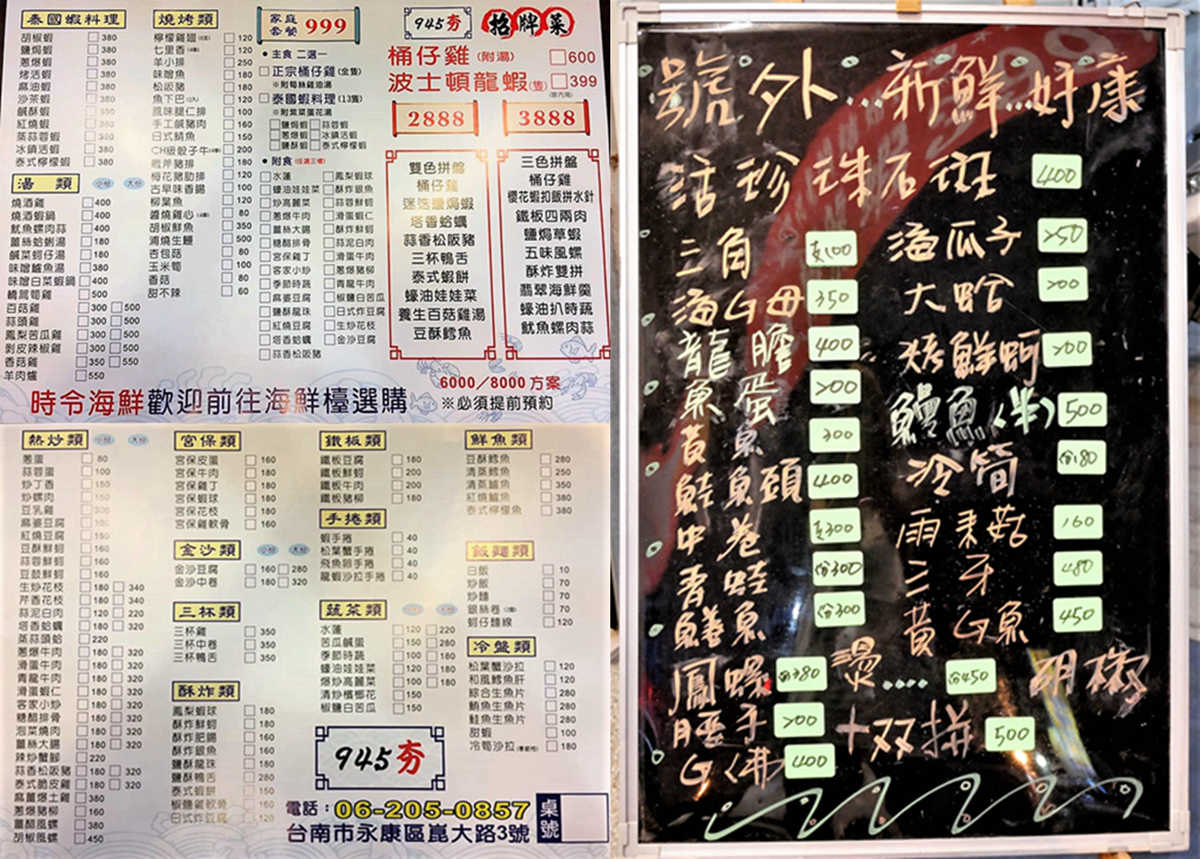 泰國蝦料理
胡椒蝦 380
鹽焗蝦 380
蔥爆蝦 380
烤活蝦 380
麻油蝦 380
沙茶蝦 380
鹹酥蝦
紅燒蝦
蒜蓉蝦 380
冰鎮活蝦 380
泰式檸檬蝦 380
湯 類 小份 大份
燒酒雞 400
燒酒蝦鍋 400
魷魚螺肉蒜 400
薑絲蛤蜊湯 180
鹹菜蚵仔湯 180
味噌鱸魚湯 380
味噌白菜蝦鍋 400
鱙筒筍雞 500
百菇雞 300 500
蒜頭雞 300 500
鳳梨苦瓜雞 300 500
剝皮辣椒雞 300 500
香菇雞 350 550
羊肉爐 550
燒烤類
檸檬雞翅 120
七里香 120
羊小排 250
味噌魚 180
松阪豬 180
魚下巴 200
風味腿仁排 100
手工鹹豬肉 160
日式鯖魚 180
CH級骰子牛 200
戰斧豬排 180
梅花豬肋排 120
古早味香腸 100
柳葉魚 120
醬燒雞心 80
胡椒鮮魚 350
清燒生腫 500
杏包菇 80
玉米筍 100
香菇 80
甜不辣 60
家庭套餐 999
• 主食 二選一
正宗桶仔雞(全隻)
※附筍絲雞油湯
泰國蝦料理(13隻)
※附紫菜蛋花湯
鹽焗蝦 蒜蓉蝦
蔥爆蝦 冰鎮活蝦
鹹酥蝦 泰式檸檬蝦
• 附食(任選三樣)
水蓮 鳳梨蝦球
蠔油娃娃菜 酥炸銀魚
炒高麗菜 蒜蓉鮮蚵
蔥爆牛肉 滑蛋蝦仁
薑絲大腸 酥炸鮮蚵
糖醋排骨 蒜泥白肉
宮保雞丁 滑蛋牛肉
客家小炒 蔥爆豬柳
季節時蔬 青龍牛肉
麻婆豆腐 椒鹽白苦瓜
酥炸龍珠 日式炸豆腐
紅燒豆腐 生炒花枝
鹽酥菇 金沙豆腐
蒜香松阪豬
945夯 招牌菜
桶仔雞(附湯) 600
波士頓龍蝦(隻) 399
2888
雙色拼盤
桶仔雞
迷迭鹽焗蝦
塔香蛤蠣
蒜香松阪豬
三杯鴨舌
泰式蝦餅
蠔油娃娃菜
養生百菇雞湯
豆酥鱈魚
3888
三色拼盤
桶仔雞
櫻花蝦扣飯拼水針
鐵板四兩肉
鹽焗草蝦
五味風螺
酥炸雙拼
翡翠海鮮羹
蠔油扒時蔬
魷魚螺肉蒜
6000/8000 方案
※必須提前預約
時令海鮮歡迎前往海鮮檯選購
熱炒類 小份 大份
蔥蛋 80
蒜蓉蛋 100
炒丁香 150
炒螺肉 150
豆乳雞
麻婆豆腐
紅燒豆腐 150
豆酥鮮蚵 160
蒜蓉鮮蚵 160
豆鼓鮮蚵 160
生炒花枝 180 340
芹香花枝 180 340
蒜泥白肉 120 220
塔香蛤蠣 180 320
蒸蒜頭蛤 220
蔥爆牛肉 180 320
滑蛋牛肉 180 320
青龍牛肉 180 320
滑蛋蝦仁 180 320
客家小炒 180 320
糖醋排骨 180 320
泡菜燒肉 180 320
薑絲大腸 180 320
辣炒蟹腳 220
蒜香松阪豬 180 320
泰式脆皮雞 180 320
麻薑爆土雞 380
蔥爆豬柳 160
薑醋風螺 380
胡椒風螺 450
宮保類
宮保皮蛋 160
宮保牛肉 180
宮保雞丁 180
宮保蝦球 180
宮保花枝 180
宮保雞軟骨 160
金沙類 小份 大份
金沙豆腐 160 280
金沙中卷 180 320
三杯類
三杯雞 350
三杯中卷 350
三杯鴨舌 350
酥炸類
鳳梨蝦球 180
酥炸鮮蚵 180
酥炸肥腸 180
酥炸銀魚 180
鹽酥龍珠 180
鹽酥鴨舌 280
泰式蝦餅
椒鹽雞軟骨 160
日式炸豆腐 120
鐵板類
鐵板豆腐 180
鐵板鮮蚵 200
鐵板牛肉 200
鐵板豬柳 180
手捲類
蝦手捲 40
松葉蟹手捲 40
飛魚卵手捲 40
龍蝦沙拉手捲 40
蔬菜類
水蓮 120 220
苦瓜鹹蛋 150 280
季節時蔬 100 160
蠔油娃娃菜 120 180
爆炒高麗菜 100 180
清炒檳榔花 150
椒鹽白苦瓜 150
鮮魚類
豆酥鱈魚 280
清蒸鱈魚 250
清蒸鱸魚 350
紅燒鱸魚 380
泰式檸檬魚 380
飯麵類
白飯 10
炒飯 70
炒麵 70
銀絲卷 70
蚵仔麵線 120
冷盤類
松葉蟹沙拉 120
和風鱈魚肝 120
綜合生魚片 280
鮪魚生魚片 280
鮭魚生魚片 280
甜蝦 100
冷筍沙拉 180
945夯
電話:06-205-0857
台南市永康區崑大路3號
桌號
號外...新鮮...好康
活珍珠石斑 400
三角 支100 海瓜子 250
海G母 350 大蛤 200
龍膽 400 烤鮮蚵 200
魚蛋 200 鱷魚(半) 500
黃魚 300 冷筒 份180
鮭魚頭 400 雨來菇 160
中卷 支300 三牙 480
青蛙 份300 黃G魚 450
鱔魚 份300
鳳螺 份380 燙.... 份450 胡椒
腰子 200 十双拼 500
G佛 400